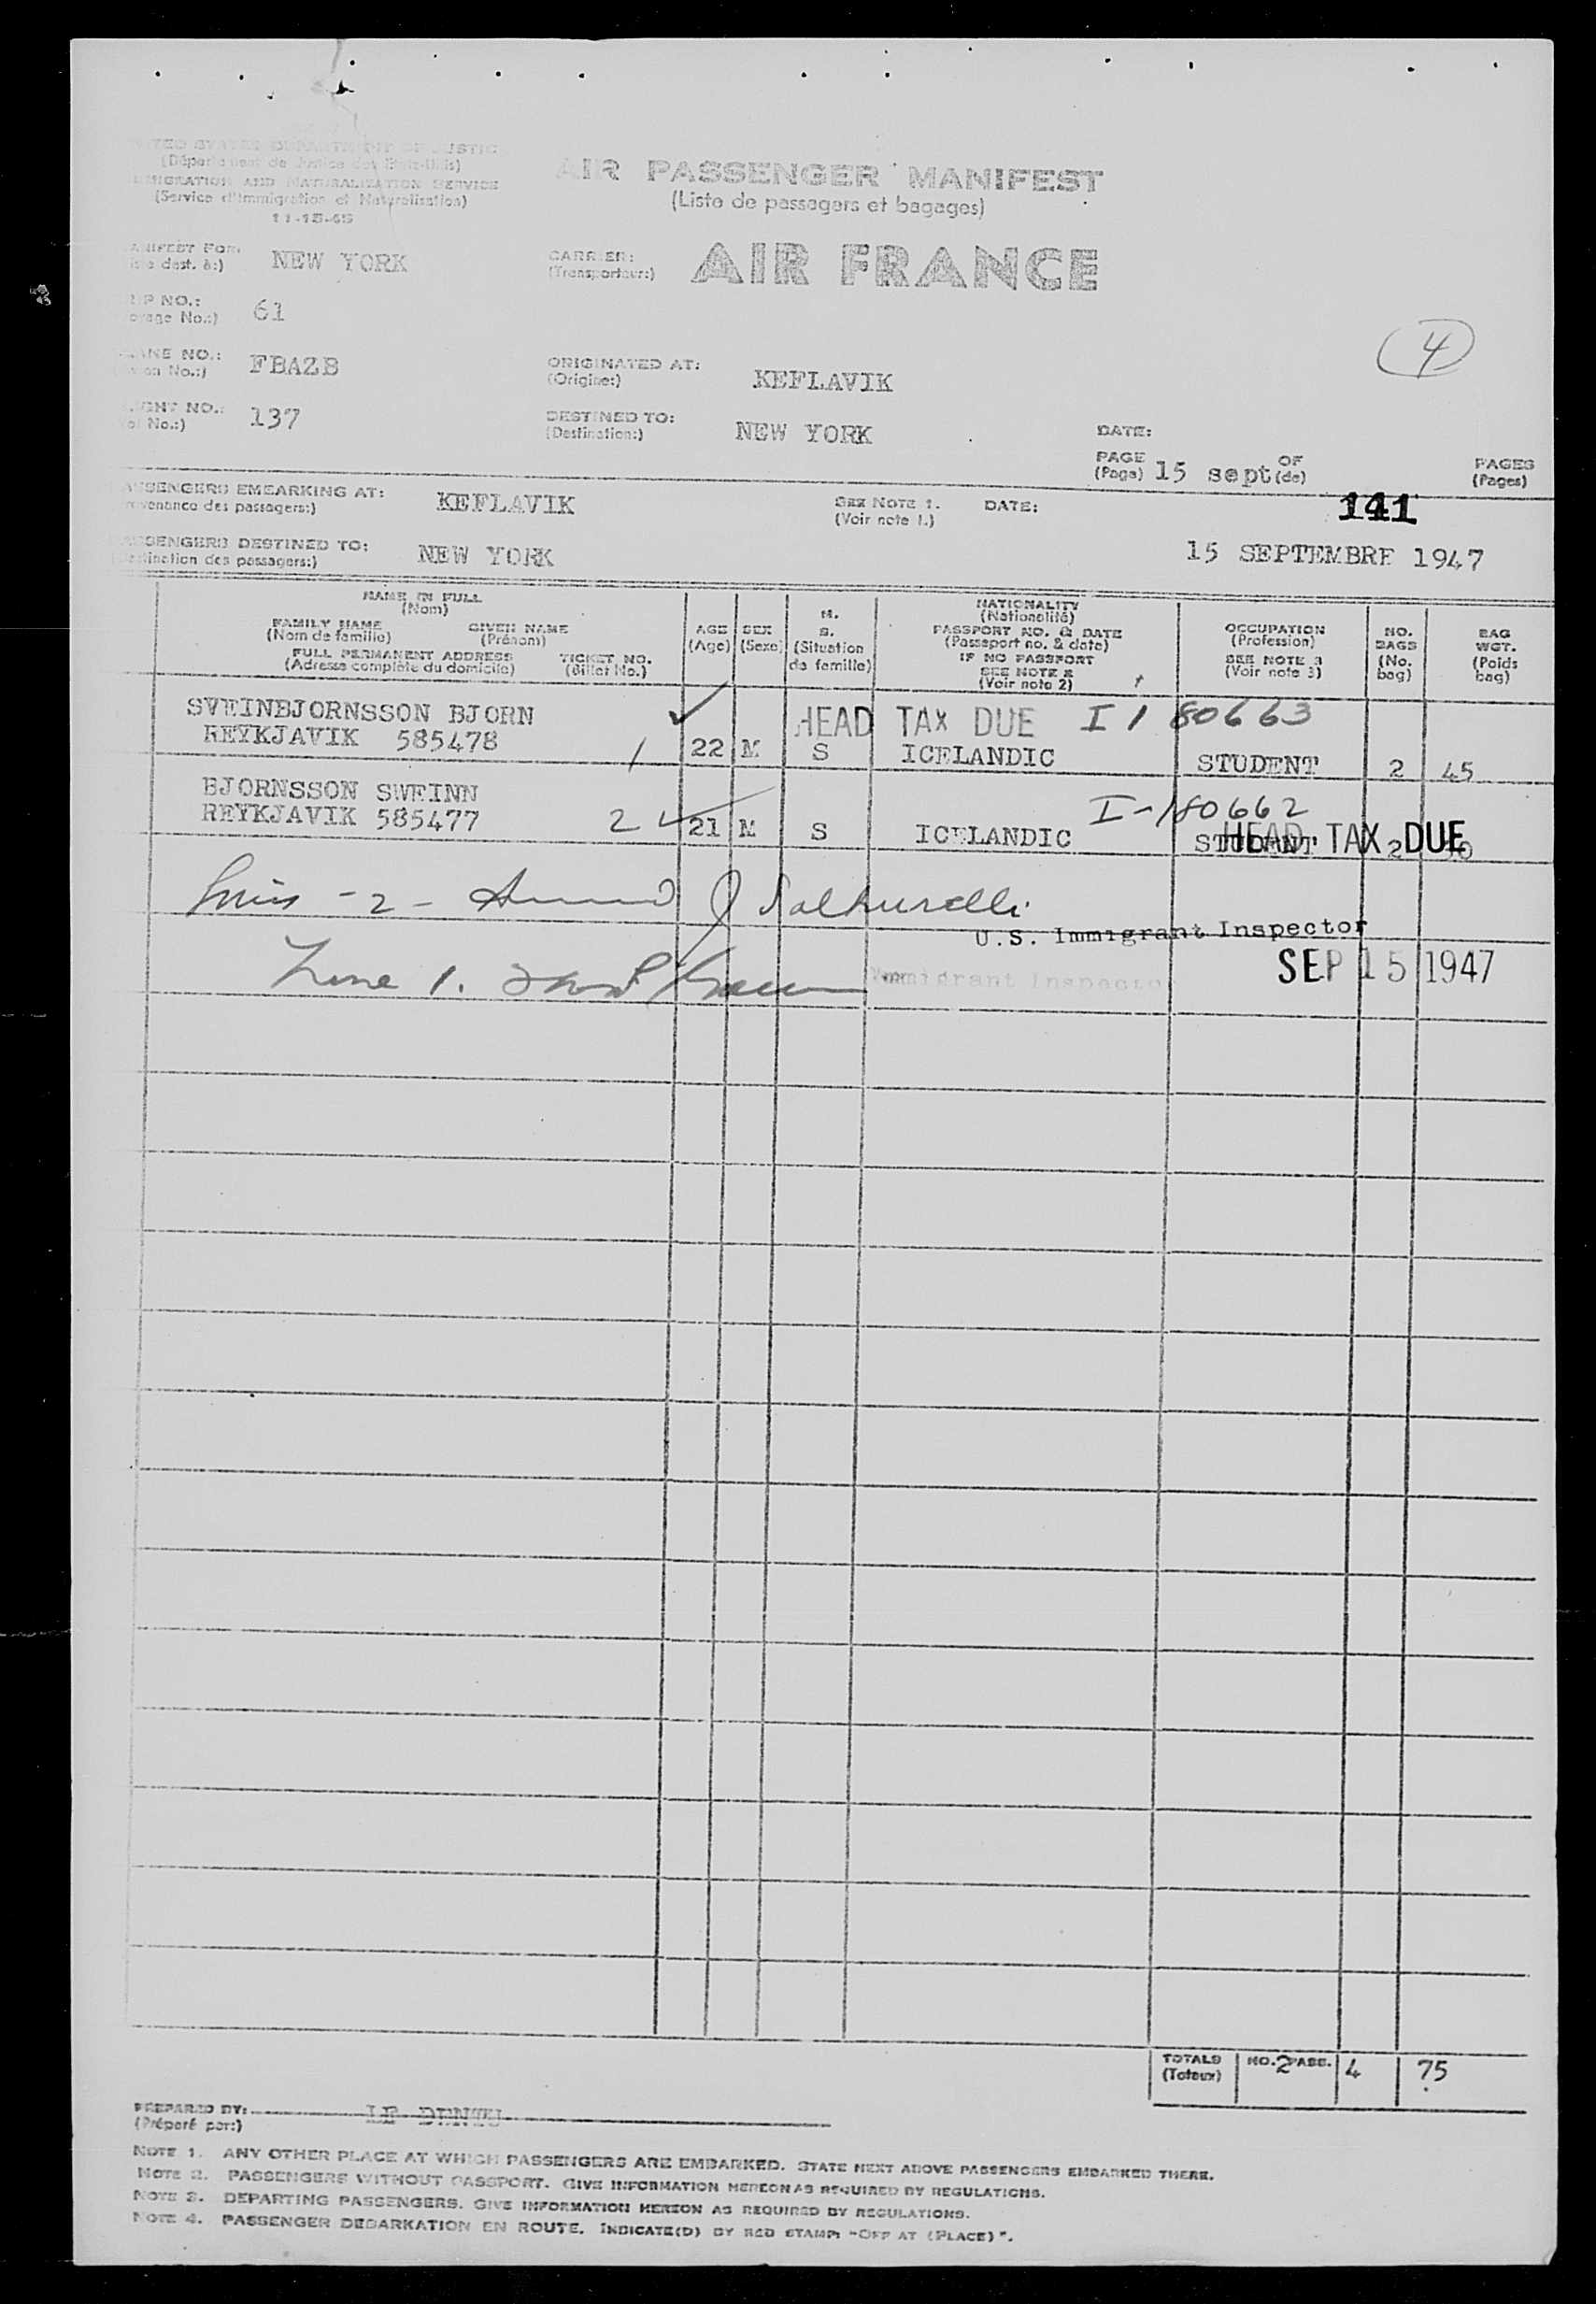 UNITED STATES DEPARTMENT OF JUSTIC
(Département de Justice des Etats-Unis)
MIGRATION AND NATURALIZATION SERVICE
(Service d'Immigration et Naturalisation)
11-15-45
AIR PASSENGER MANIFEST
(Liste de passagers et bagages)
ANIFEST FOR:
dest. à:)
NEW YORK
CARRIER:
(Transporteur:)
AIR FRANCE
IP NO.:
oyage No.:)
61
4
LANE NO.:
vion No.:)
FBAZB
ORIGINATED AT:
(Origine:)
KEFLAVIK
IGHT NO.:
ol No.:)
137
DESTINED TO:
(Destination:)
NEW YORK
DATE:
PAGE
(Page)
15 sept
OF
(de)
PAGES
(Pages)
ASSENGERS EMBARKING AT:
rovenance des passagers:)
KEFLAVIK
SEE NOTE 1.
(Voir note 1.)
DATE:
141
ASSENGERS DESTINED TO:
estination des passagers:)
NEW YORK
15 SEPTEMBRE 1947
NAME IN FULL
(Nom)
FAMILY NAME
(Nom de famille)
GIVEN NAME
(Prénom)
FULL PERMANENT ADDRESS
(Adresse complète du domicile)
TICKET NO.
(Billet No.)
AGE
(Age)
SEX
(Sexe)
M.
S.
(Situation
de famille)
NATIONALITY
(Nationalité)
PASSPORT NO. & DATE
(Passeport no. & date)
IF NO PASSPORT
SEE NOTE 2
(Voir note 2)
OCCUPATION
(Profession)
SEE NOTE 3
(Voir note 3)
NO.
BAGS
(No.
bag)
BAG
WGT.
(Poids
bag)
SVEINBJORNSSON BJORN HEAD TAX DUE I 180663
REYKJAVIK 585478 1 22 M S ICELANDIC STUDENT 2 45
BJORNSSON SWEINN I-180662
REYKJAVIK 585477 2 21 M S ICELANDIC STUDENT 2
HEAD TAX DUE
- 2 -
U.S. Immigrant Inspector
Line 1.
Immigrant Inspector
SEP 15 1947
TOTALS
(Totaux)
NO. 2 PASS. 4 75
PREPARED BY: LE DENTU
(Préparé par:)
NOTE 1. ANY OTHER PLACE AT WHICH PASSENGERS ARE EMBARKED. STATE NEXT ABOVE PASSENGERS EMBARKED THERE.
NOTE 2. PASSENGERS WITHOUT PASSPORT. GIVE INFORMATION HEREON AS REQUIRED BY REGULATIONS.
NOTE 3. DEPARTING PASSENGERS. GIVE INFORMATION HEREON AS REQUIRED BY REGULATIONS.
NOTE 4. PASSENGER DEBARKATION EN ROUTE. INDICATE(D) BY RED STAMP: "OFF AT (PLACE)".